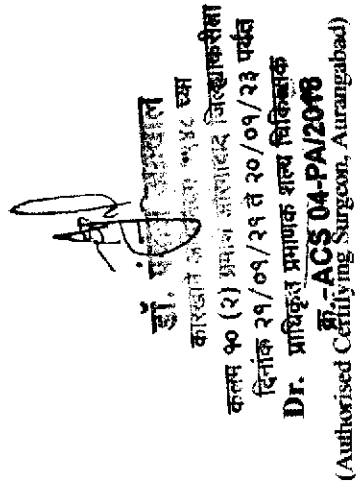 डॉ.
कारखाने १९४८ च्या
कलम १० (२) प्रमाणे औरंगाबाद जिल्ह्याकरीता
दिनांक २१/०१/२१ ते २०/०१/२३ पर्यंत
Dr. प्राधिकृत प्रमाणक शल्य चिकित्सक
क्र.-ACS 04-PA/2018
(Authorised Certifying Surgeon, Aurangabad)